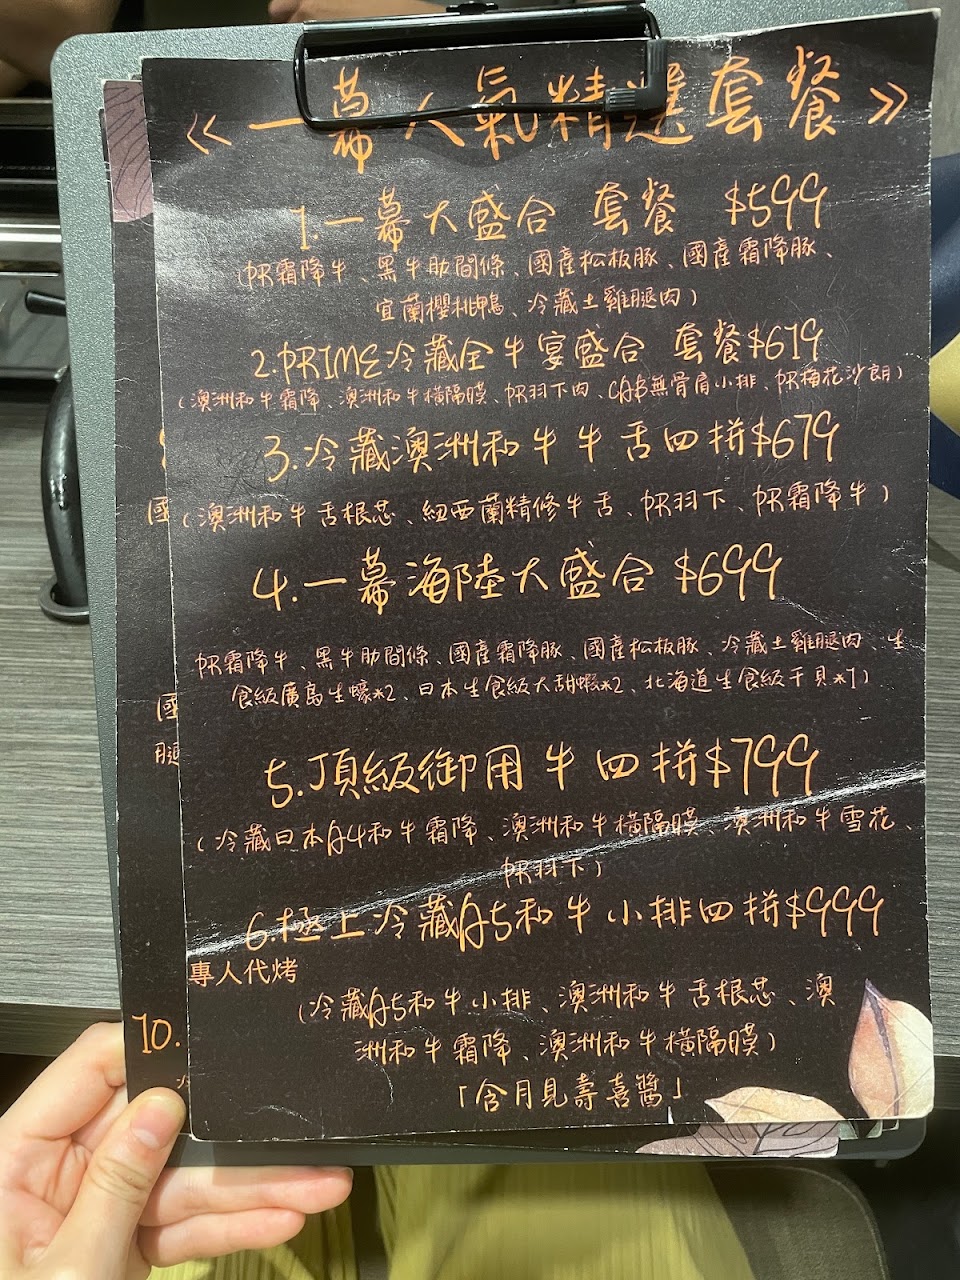 《一幕人氣精選套餐》
1.一幕大盛合 套餐 $599
(PR霜降牛、黑牛肋間條、國產松板豚、國產霜降豚、
宜蘭櫻桃鴨、冷藏土雞腿肉)
2.PRIME冷藏全牛宴盛合 套餐$619
(澳洲和牛霜降、澳洲和牛橫隔膜、PR羽下肉、CAB無骨肩小排、PR梅花沙朗)
3.冷藏澳洲和牛牛舌四拼$679
國(澳洲和牛舌根芯、紐西蘭精修牛舌、PR羽下、PR霜降牛)
4.一幕海陸大盛合$699
PR霜降牛、黑牛肋間條、國產霜降豚、國產松板豚、冷藏土雞腿肉、生
國食級廣島生蠔*2、日本生食級大甜蝦*2、北海道生食級干貝*1)
腿
5.頂級御用牛四拼$799
(冷藏日本A4和牛霜降、澳洲和牛橫隔膜、澳洲和牛雪花、
PR羽下)
6.極上冷藏A5和牛小排四拼$999
專人代烤
(冷藏A5和牛小排、澳洲和牛舌根芯、澳
洲和牛霜降、澳洲和牛橫隔膜)
10.
「含月見壽喜醬」